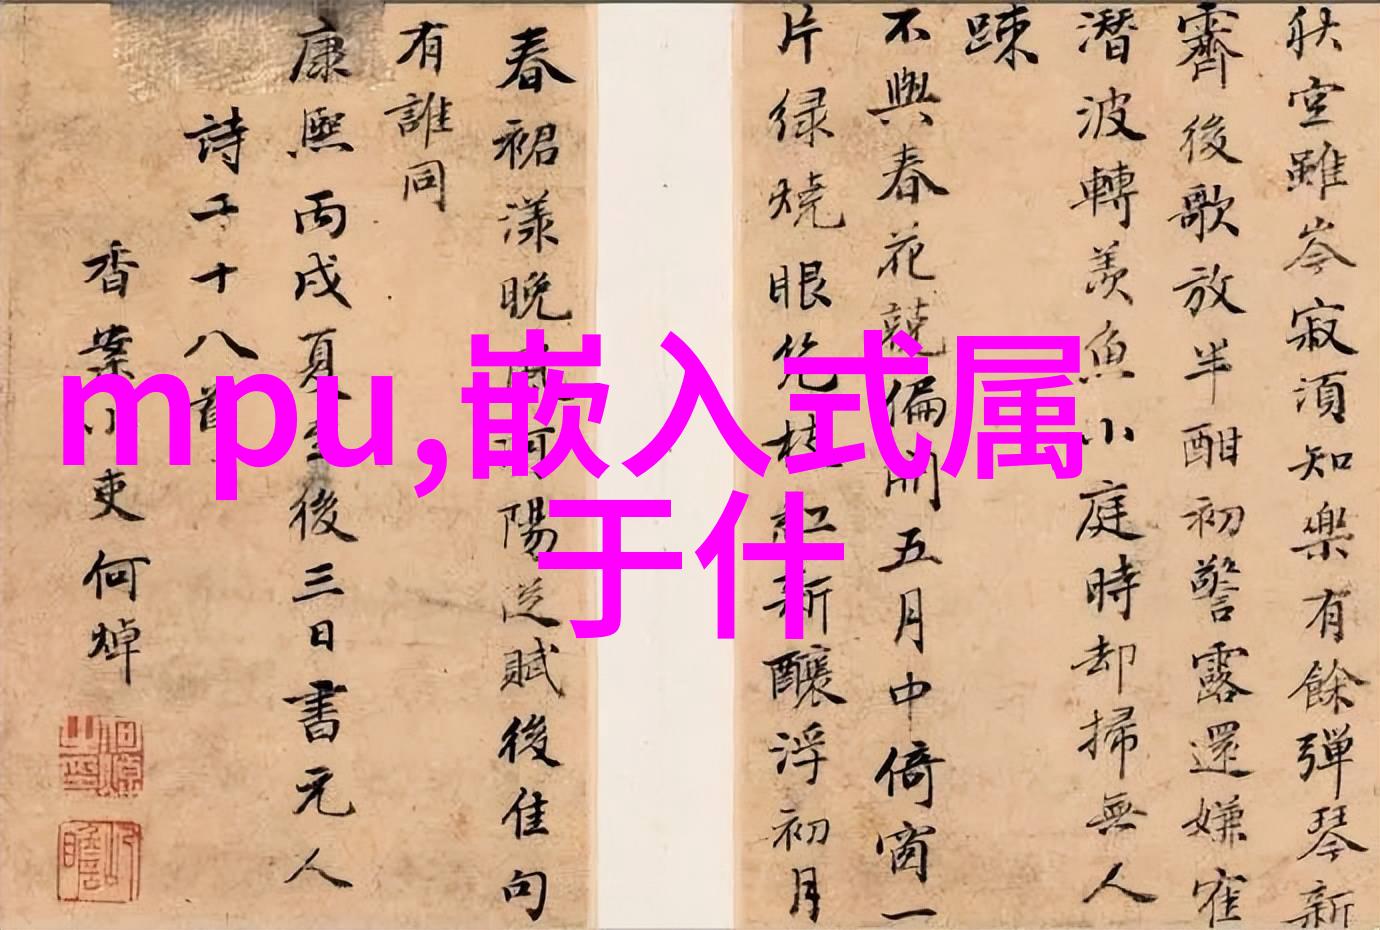 秋空雖岑寂須知樂有餘彈琴新
霽後歌放半酣初警露還嫌寉
潛波轉羨魚小庭時却掃無人
踈
不與春花競偏開五月中倚窗一
片緑燒眼
新釀浮初月
春裙漾晚
陽從賦後佳句
有誰同
康熙丙戌夏至後三日書元人
詩二十八首
香案小吏何焯
mpu,嵌入式属
于什